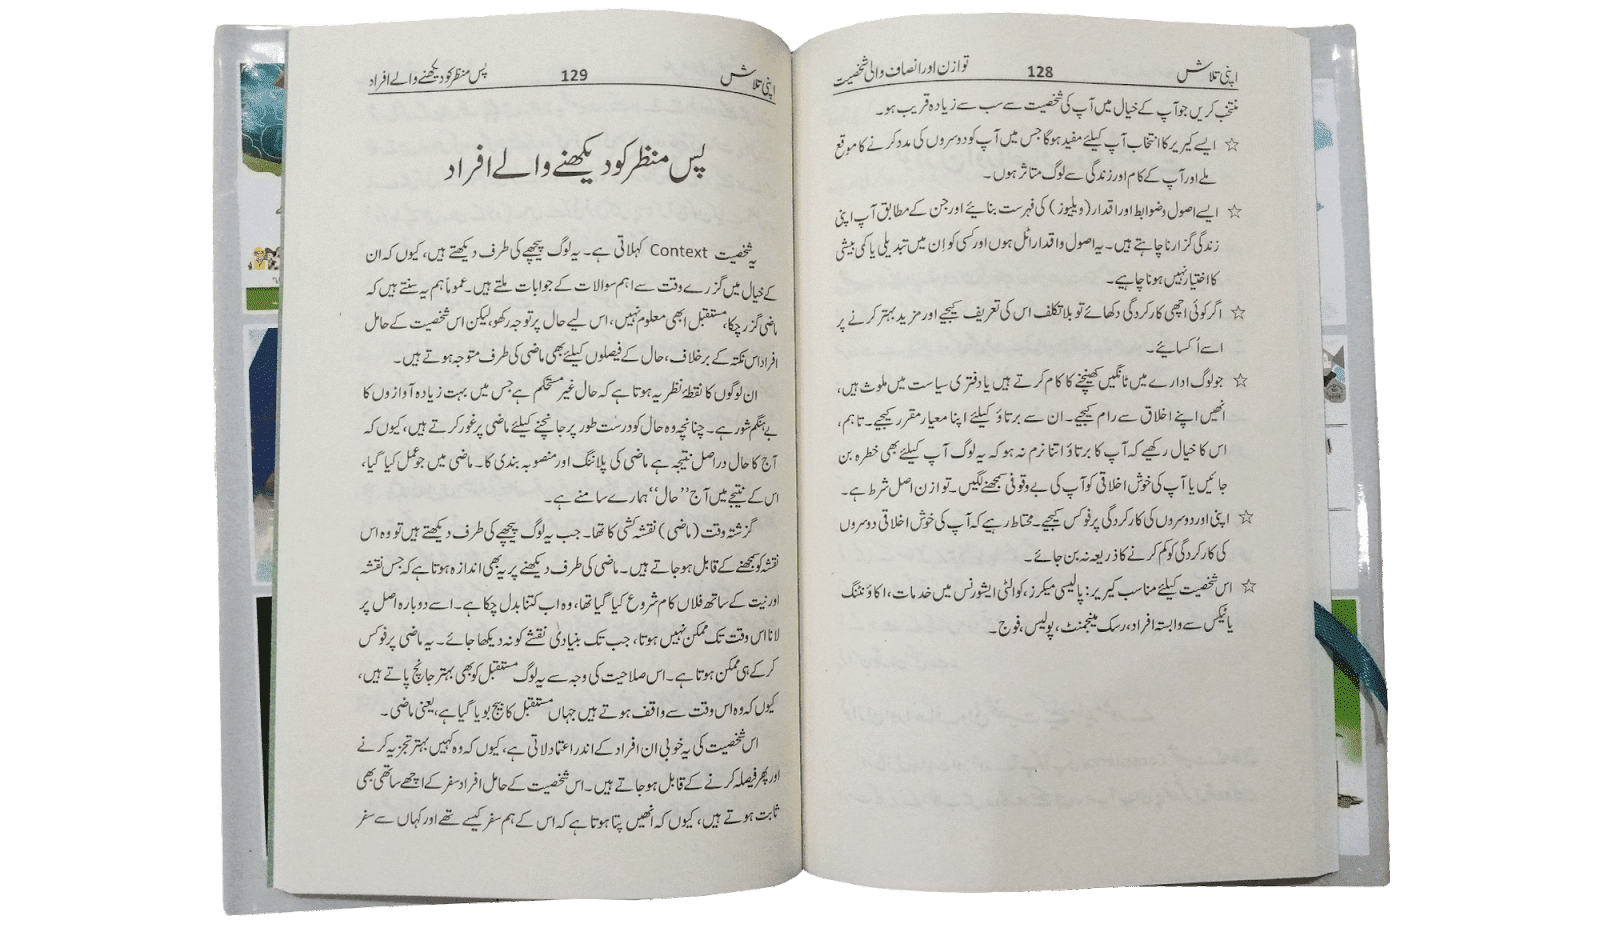 اپنی تلاش 128 توازن اور انصاف والی شخصیت
منتخب کریں جو آپ کے خیال میں آپ کی شخصیت سے سب سے زیادہ قریب ہو۔
☆ ایسے کیریر کا انتخاب آپ کیلئے مفید ہوگا جس میں آپ کو دوسروں کی مدد کرنے کا موقع
ملے اور آپ کے کام اور زندگی سے لوگ متاثر ہوں۔
☆ ایسے اصول وضوابط اور اقدار (ویلیوز) کی فہرست بنائیے اور جن کے مطابق آپ اپنی
زندگی گزارنا چاہتے ہیں۔ یہ اصول واقدار اٹل ہوں اور کسی کو اِن میں تبدیلی یا کمی بیشی
کا اختیار نہیں ہونا چاہیے۔
☆ اگر کوئی اچھی کارکردگی دکھائے تو بلا تکلف اس کی تعریف کیجیے اور مزید بہتر کرنے پر
اسے اُکسائیے۔
☆ جو لوگ ادارے میں ٹانگیں کھینچنے کا کام کرتے ہیں یا دفتری سیاست میں ملوث ہیں،
انھیں اپنے اخلاق سے رام کیجیے۔ ان سے برتاؤ کیلئے اپنا معیار مقرر کیجیے۔ تاہم،
اس کا خیال رکھیے کہ آپ کا برتاؤ اتنا نرم نہ ہو کہ یہ لوگ آپ کیلئے بھی خطرہ بن
جائیں یا آپ کی خوش اخلاقی کو آپ کی بے وقوفی سمجھنے لگیں۔ توازن اصل شرط ہے۔
☆ اپنی اور دوسروں کی کارکردگی پر فوکس کیجیے۔ محتاط رہیے کہ آپ کی خوش اخلاقی دوسروں
کی کارکردگی کو کم کرنے کا ذریعہ نہ بن جائے۔
☆ اس شخصیت کیلئے مناسب کیریر: پالیسی میکرز، کوالٹی ایشورنس میں خدمات، اکاؤنٹنگ
یا ٹیکس سے وابستہ افراد، رسک مینجمنٹ، پولیس، فوج۔
اپنی تلاش 129 پس منظر کو دیکھنے والے افراد
پس منظر کو دیکھنے والے افراد
یہ شخصیت Context کہلاتی ہے۔ یہ لوگ پیچھے کی طرف دیکھتے ہیں، کیوں کہ ان
کے خیال میں گزرے وقت سے اہم سوالات کے جوابات ملتے ہیں۔ عموماً ہم یہ سنتے ہیں کہ
ماضی گزر چکا، مستقبل ابھی معلوم نہیں، اس لیے حال پر توجہ رکھو، لیکن اس شخصیت کے حامل
افراد اس نکتہ کے برخلاف، حال کے فیصلوں کیلئے بھی ماضی کی طرف متوجہ ہوتے ہیں۔
ان لوگوں کا نقطۂ نظر یہ ہوتا ہے کہ حال غیر مستحکم ہے جس میں بہت زیادہ آوازوں کا
بے ہنگم شور ہے۔ چنانچہ وہ حال کو درست طور پر جانچنے کیلئے ماضی پر غور کرتے ہیں، کیوں کہ
آج کا حال دراصل نتیجہ ہے ماضی کی پلاننگ اور منصوبہ بندی کا۔ ماضی میں جو عمل کیا گیا،
اس کے نتیجے میں آج ”حال“ ہمارے سامنے ہے۔
گزشتہ وقت (ماضی) نقشہ کشی کا تھا۔ جب یہ لوگ پیچھے کی طرف دیکھتے ہیں تو وہ اس
نقشہ کو سمجھنے کے قابل ہو جاتے ہیں۔ ماضی کی طرف دیکھنے پر یہ بھی اندازہ ہوتا ہے کہ جس نقشہ
اور نیت کے ساتھ فلاں کام شروع کیا گیا تھا، وہ اب کتنا بدل چکا ہے۔ اسے دوبارہ اصل پر
لانا اس وقت تک ممکن نہیں ہوتا، جب تک بنیادی نقشے کو نہ دیکھا جائے۔ یہ ماضی پر فوکس
کر کے ہی ممکن ہوتا ہے۔ اس صلاحیت کی وجہ سے یہ لوگ مستقبل کو بھی بہتر جانچ پاتے ہیں،
کیوں کہ وہ اس وقت سے واقف ہوتے ہیں جہاں مستقبل کا بیج بویا گیا ہے، یعنی ماضی۔
اس شخصیت کی یہ خوبی ان افراد کے اندر اعتماد لاتی ہے، کیوں کہ وہ کہیں بہتر تجزیہ کرنے
اور پھر فیصلہ کرنے کے قابل ہو جاتے ہیں۔ اس شخصیت کے حامل افراد سفر کے اچھے ساتھی بھی
ثابت ہوتے ہیں، کیوں کہ انھیں پتا ہوتا ہے کہ اس کے ہم سفر کیسے تھے اور کہاں سے سفر